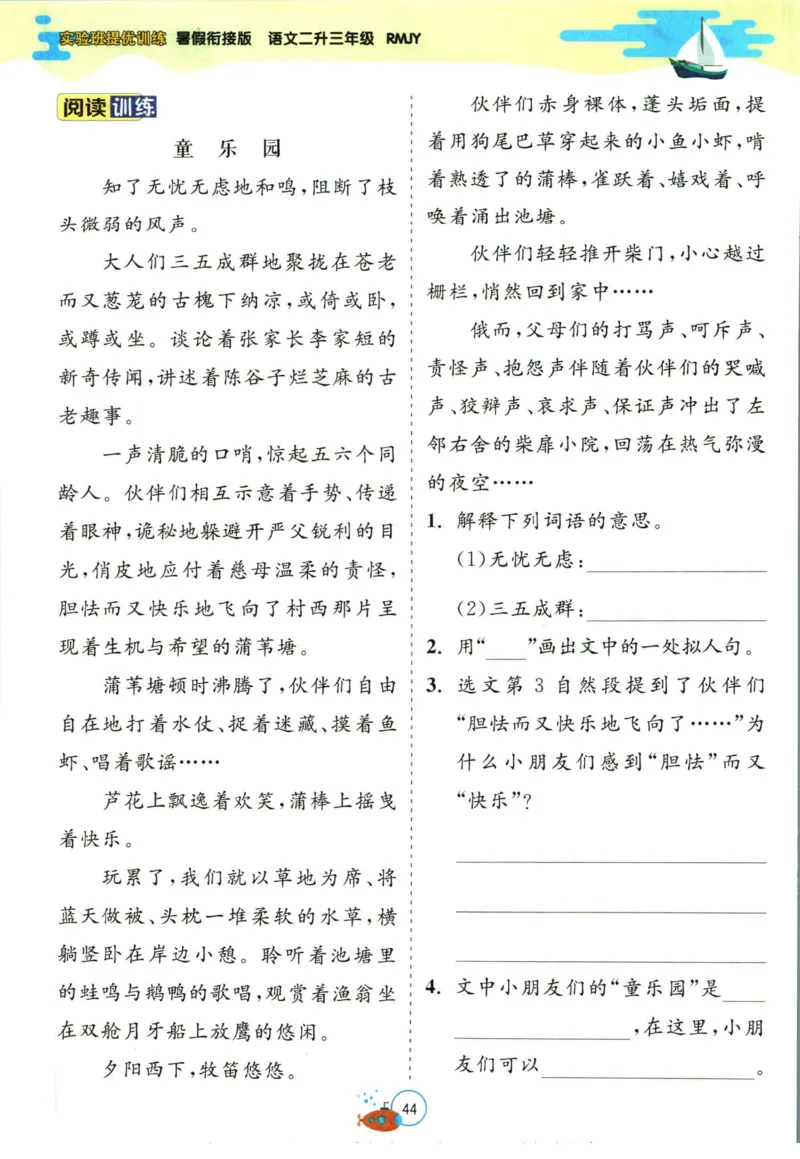 实验班提优训练 暑假衔接版 语文二升三年级 RMJY
阅读训练
童 乐 园
知了无忧无虑地和鸣,阻断了枝
头微弱的风声。
大人们三五成群地聚拢在苍老
而又葱茏的古槐下纳凉,或倚或卧,
或蹲或坐。谈论着张家长李家短的
新奇传闻,讲述着陈谷子烂芝麻的古
老趣事。
一声清脆的口哨,惊起五六个同
龄人。伙伴们相互示意着手势、传递
着眼神,诡秘地躲避开严父锐利的目
光,俏皮地应付着慈母温柔的责怪,
胆怯而又快乐地飞向了村西那片呈
现着生机与希望的蒲苇塘。
蒲苇塘顿时沸腾了,伙伴们自由
自在地打着水仗、捉着迷藏、摸着鱼
虾、唱着歌谣……
芦花上飘逸着欢笑,蒲棒上摇曳
着快乐。
玩累了,我们就以草地为席、将
蓝天做被、头枕一堆柔软的水草,横
躺竖卧在岸边小憩。聆听着池塘里
的蛙鸣与鹅鸭的歌唱,观赏着渔翁坐
在双舱月牙船上放鹰的悠闲。
夕阳西下,牧笛悠悠。
伙伴们赤身裸体,蓬头垢面,提
着用狗尾巴草穿起来的小鱼小虾,啃
着熟透了的蒲棒,雀跃着、嬉戏着、呼
唤着涌出池塘。
伙伴们轻轻推开柴门,小心越过
栅栏,悄然回到家中……
俄而,父母们的打骂声、呵斥声、
责怪声、抱怨声伴随着伙伴们的哭喊
声、狡辩声、哀求声、保证声冲出了左
邻右舍的柴扉小院,回荡在热气弥漫
的夜空……
1. 解释下列词语的意思。
(1)无忧无虑:
(2)三五成群:
2. 用“____”画出文中的一处拟人句。
3. 选文第 3 自然段提到了伙伴们
“胆怯而又快乐地飞向了……”为
什么小朋友们感到“胆怯”而又
“快乐”?
4. 文中小朋友们的“童乐园”是____
____,在这里,小朋
友们可以____。
44